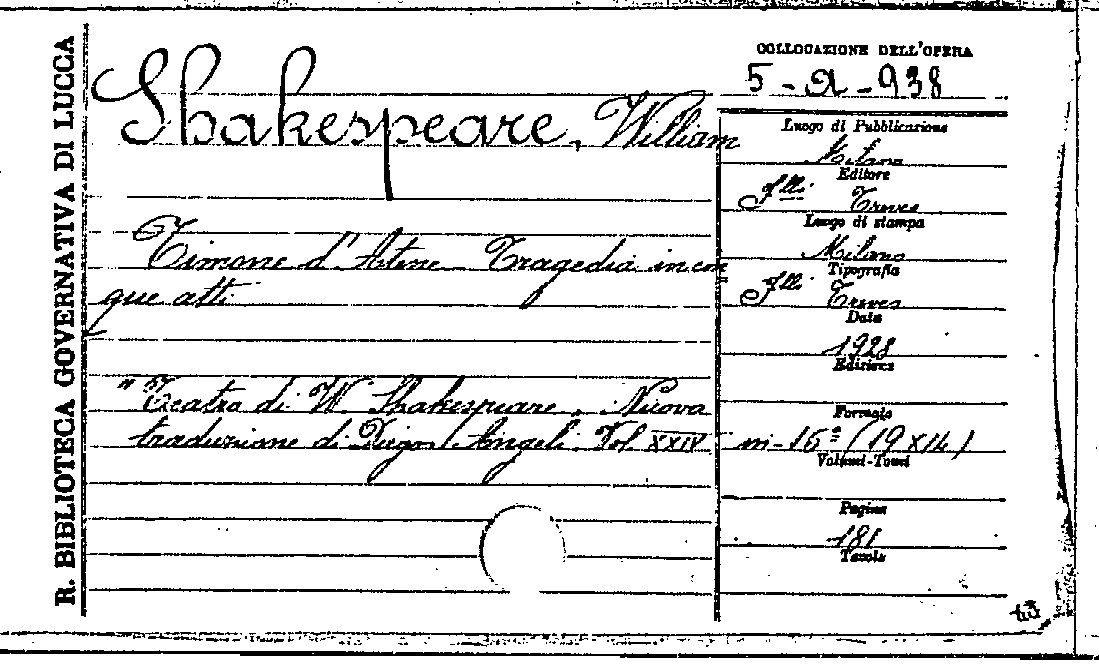 R. BIBLIOTECA GOVERNATIVA DI LUCCA
Shakespeare, William
Timone d'Atene Tragedia in cin
que atti
"Teatro di W. Shakespeare. Nuova
traduzione di Diego Angeli. Vol XXIV
COLLOCAZIONE DELL'OPERA
5-2-938
Luogo di Pubblicazione
Milano
Editore
F.lli Treves
Luogo di stampa
Milano
Tipografia
F.lli Treves
Data
1928
Edizione
Formato
in-16° (19x14)
Volumi-Tomi
Pagine
181
Tavole